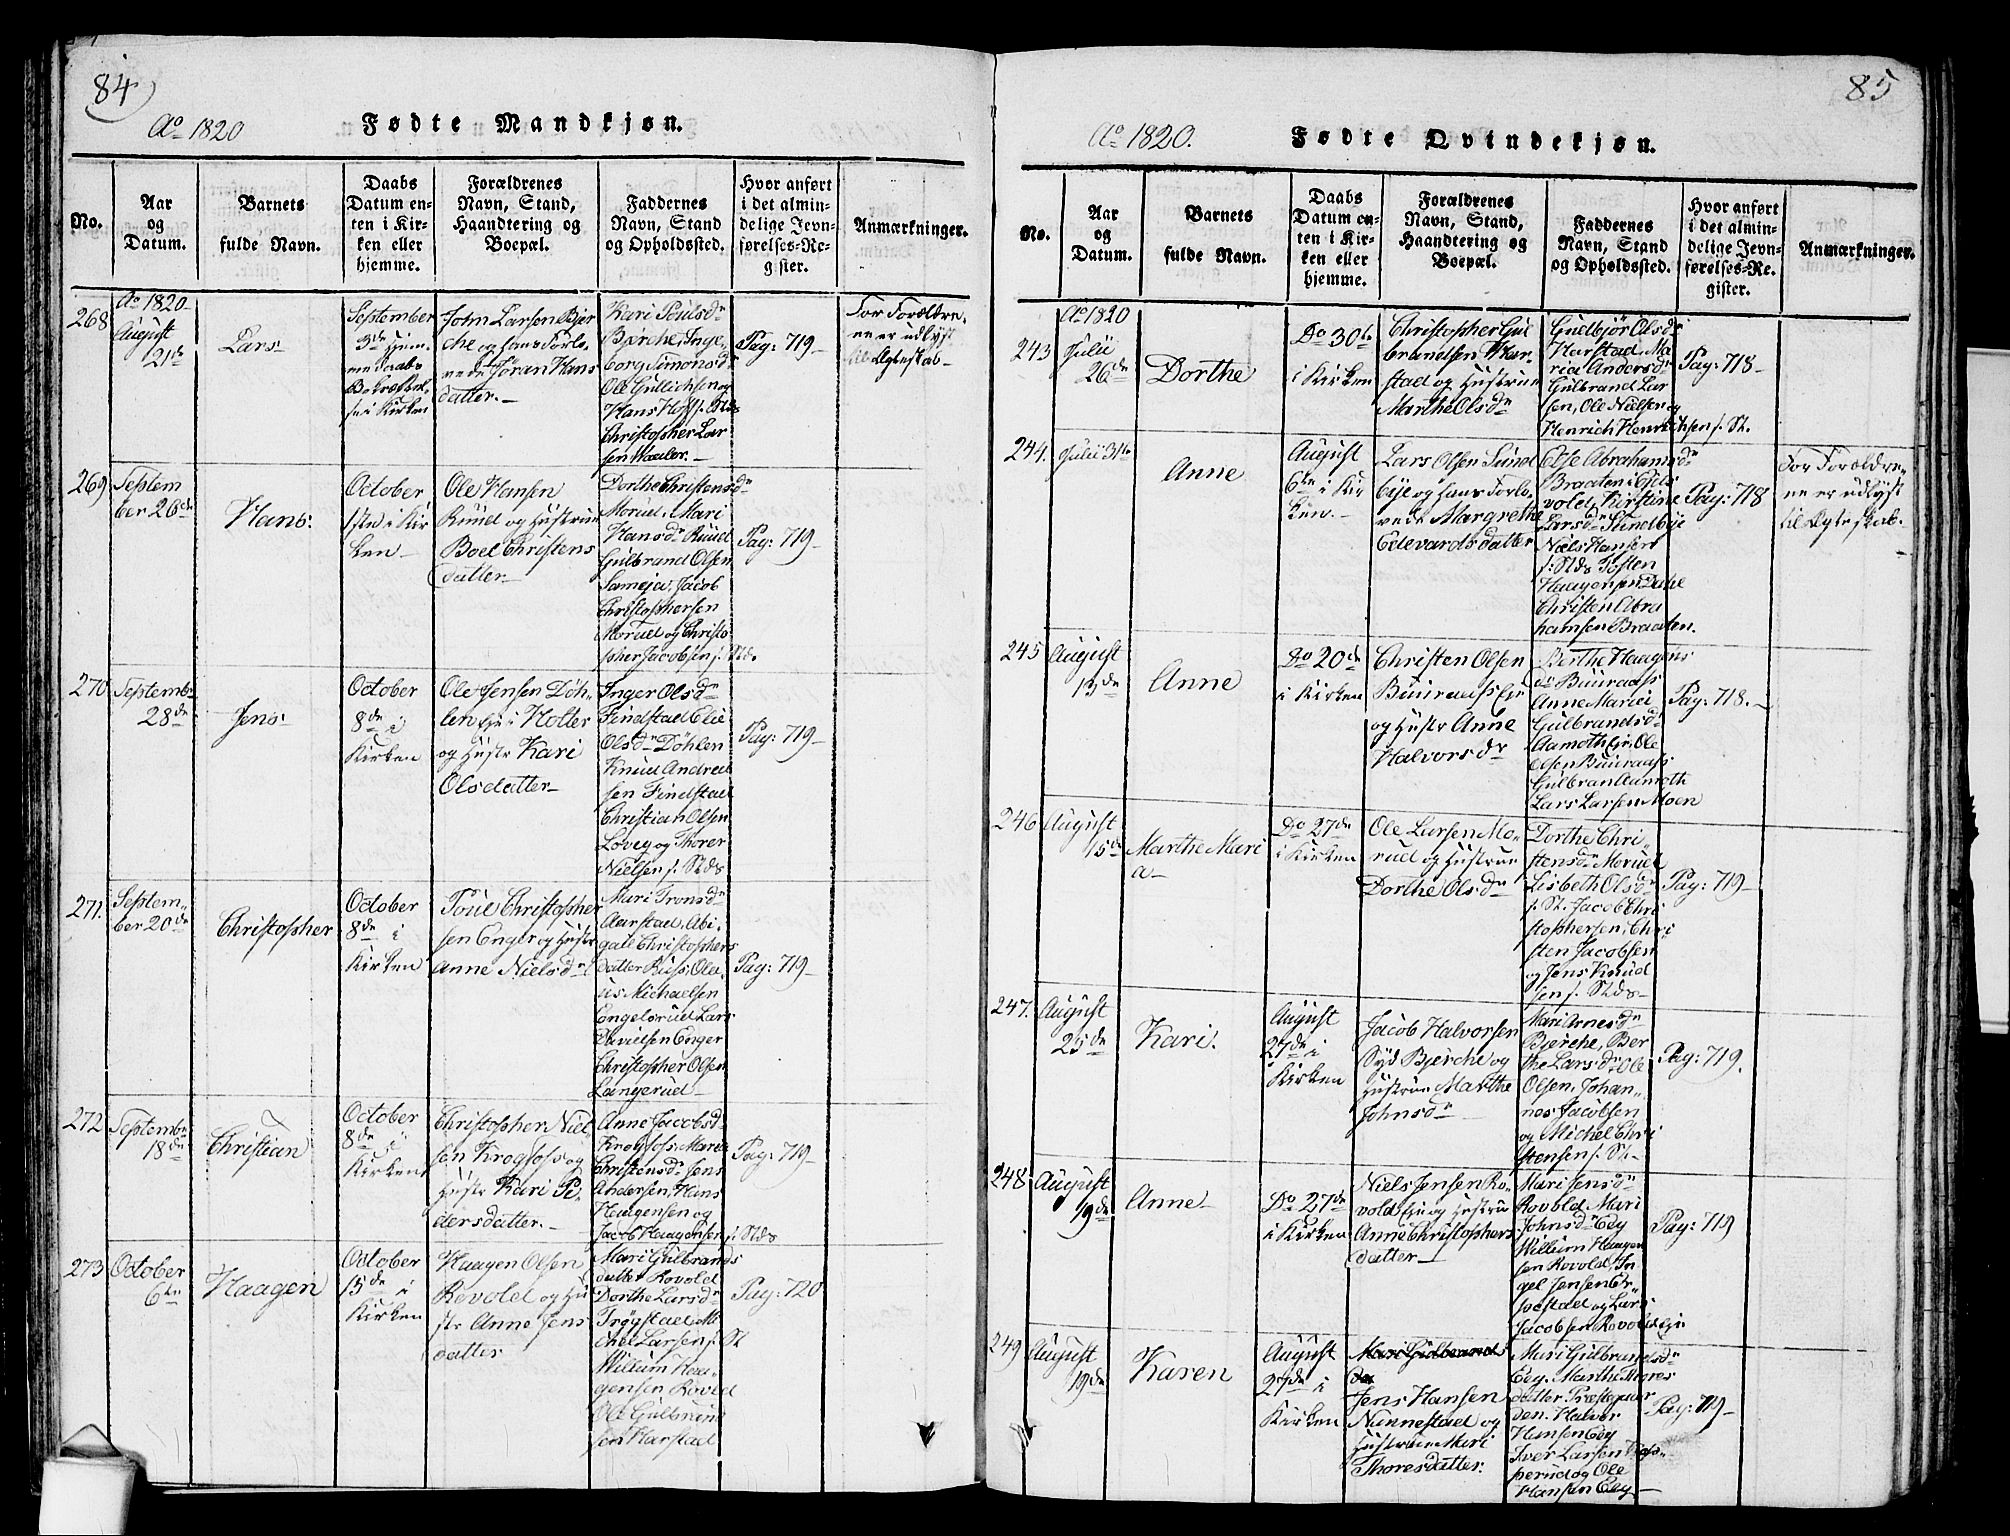 84
Ao 1820
Fødte Mandkjøn.
No.
Aar
og
Datum.
Barnets
fulde Navn.
Daabs
Datum en-
ten i Kir-
ken eller
hjemme.
Forældrenes
Navn, Stand,
Haandtering og
Boepæl.
Faddernes
Navn, Stand
og Opholdssted.
Hvor anført
i det almin-
delige Jevn-
førelses-Re-
gister.
Anmærkninger.
268
Ao 1820
August
21de
Lars
September
3de Hjem-
me daabs
Bekræftel-
se i Kirken
John Larsen Bjer
che og hans Forlo-
vede Jøran Hans
datter.
Kari Poulsdr
Bjerche, Inge
borg Simonsdr
Ole Gullichsen og
Hans Hoff f. Stds
Christopher Lar
sen Wæiler.
Pag: 719
For Forældre-
ne er udlyst
til Ægteskab
269
Septem
ber 26de
Hans
October
1sten i Kir
ken
Ole Hansen
Ruud og Hustrue
Boel Christens
datter
Dorthe Christensdr
Morud, Mari
Hansdr Ruud
Gulbrand Olsen
Sameja, Jacob
Christophersen
Morud og Christo
pher Jacobsen f. Stds.
Pag: 719
270
Septembr
28de
Jens
October
8de i
Kirken
Ole Jensen Døh-
len Eje i Holter
og Hustr Kari
Olsdatter
Inger Olsdr
Findstad Elie
Olsdr Døhlen
Knud Andrea
sen Findstad
Christian Olsen
Løveg og Thorer
Nielsen f. Stds
Pag: 719
271.
Septem-
ber 20de
Christopher
October
8de i
Kirken
Poul Christopher
sen Enger og Hustr
Anne Nielsdr
Mari Tronsdr
Aarstad, Abi-
gael Christophers
datter Russ, Ole-
us Michaelsen
Engelsrud Lars
Enger
Christopher Olsen
Langerud
Pag: 719
272
Septembr
18de
Christian
October
8de i
Kirken
Christopher Niel
sen Krogfoss og
Hustr Kari Pe-
dersdatter.
Anne Jacobsd
Krogfoss, Maria
Christensdr Jens
Andersen, Hans
Haagensen og
Jacob Haagensen f. Stds
Pag: 719
273
October
6te
Haagen
October
15de i
Kirken
Haagen Olsen
Rovold og Hu
str Anne Jens
datter
Mari Gulbrands
datter Rovold
Dorthe Larsdr
Trøgstad, Mi
chel Larsen f. St
Willum Haa
gensen Rovold
Ole Gulbrand
sen Harstad
Pag: 720
85
Ao 1820.
Fødte Qvindekjøn.
No.
Aar
og
Datum.
Barnets
fulde Navn.
Daabs
Datum en-
ten i Kir-
ken eller
hjemme.
Forældrenes
Navn, Stand,
Haandtering og
Boepæl.
Faddernes
Navn, Stand
og Opholdssted.
Hvor anført
i det almin-
delige Jevn-
førelses-Re-
gister.
Anmærkninger.
243
Ao 1820
Julii
26de
Dorthe
Do 30te
i Kirken
Christopher Gul
brandsen Har-
stad og Hustrue
Marthe Olsdr
Gudbjør Olsdr
Harstad, Ma
ria Andersdr
Gulbrand Lar
sen, Ole Nielsen og
Henrich Henrichsen f. St.
Pag: 718
244.
Julii 31te
Anne
August
6te i Kir
ken.
Lars Olsen Sund
bye og hans Forlo-
vede Margrethe
Edevardsdatter
Else Abrahamsdr
Braaten i Ejds
vold, Kirstine
Larsdr Sundbye
Niels Hansen
f. Stds Tosten
Haagensen Dahl
Christen Abra
hamsen Braaten.
Pag: 718
For Forældre-
ne er udlyst
til Ægteskab.
245
August
13de
Anne
Do 20de
i Kirken
Christen Olsen
Buuraass Eje
og Hustr Anne
Halvorsdr
Berthe Haagens
dr Buuraass
Anne Marie
Gulbrandsdr
Aamoth Eje, Ole
Olsen Buuraass
Gulbran Aamoth
Lars Larsen Moen
Pag: 718.
246
August
15de
Marthe Mari
a
Do 27de
i Kirken
Ole Larsen Mo-
rud og Hustrue
Dorthe Olsdr
Dorthe Chri-
stensdr Morud
Lisbeth Olsdr
f. St. Jacob Chri
stophersen, Chri
sten Jacobsen
og Jens Knud
sen f. Stds
Pag: 719
247.
August
25de
Kari.
August
27de i
Kirken
Jacob Halvorsen
Syd Bjerche og
Hustrue Marthe
Johnsdr
Mari Arnesdr
Bjerche, Ber
the Larsdr Ole
Olsen, Johan-
nes Jacobsen
og Michel Chri
stensen f. St.
Pag: 719.
248
August
19de
Anne
Do 27de
i Kirken
Niels Jensen Ro-
vold Eje og Hustrue
Anne Christophers
datter
Mari Jensdr
Rovold Mari
Johnsdr Eeg
Willum Haagen
sen Rovold, In
gel Jensen Er
pestad og Lars
Jacobsen Rovold Eje
Pag: 719
249
August
19de
Karen
August
27de i
Kirken
Mari Gulbrands
Jens Hansen
Nannestad og
Hustrue Mari
Thoresdatter.
Mari Gulbrandsdr
Eeg. Marthe Thores
datter Præstegaar
den. Halvor
Hansen Eeg
Iver Larsen
perud og Ole
Hansen Eeg
Pag: 719